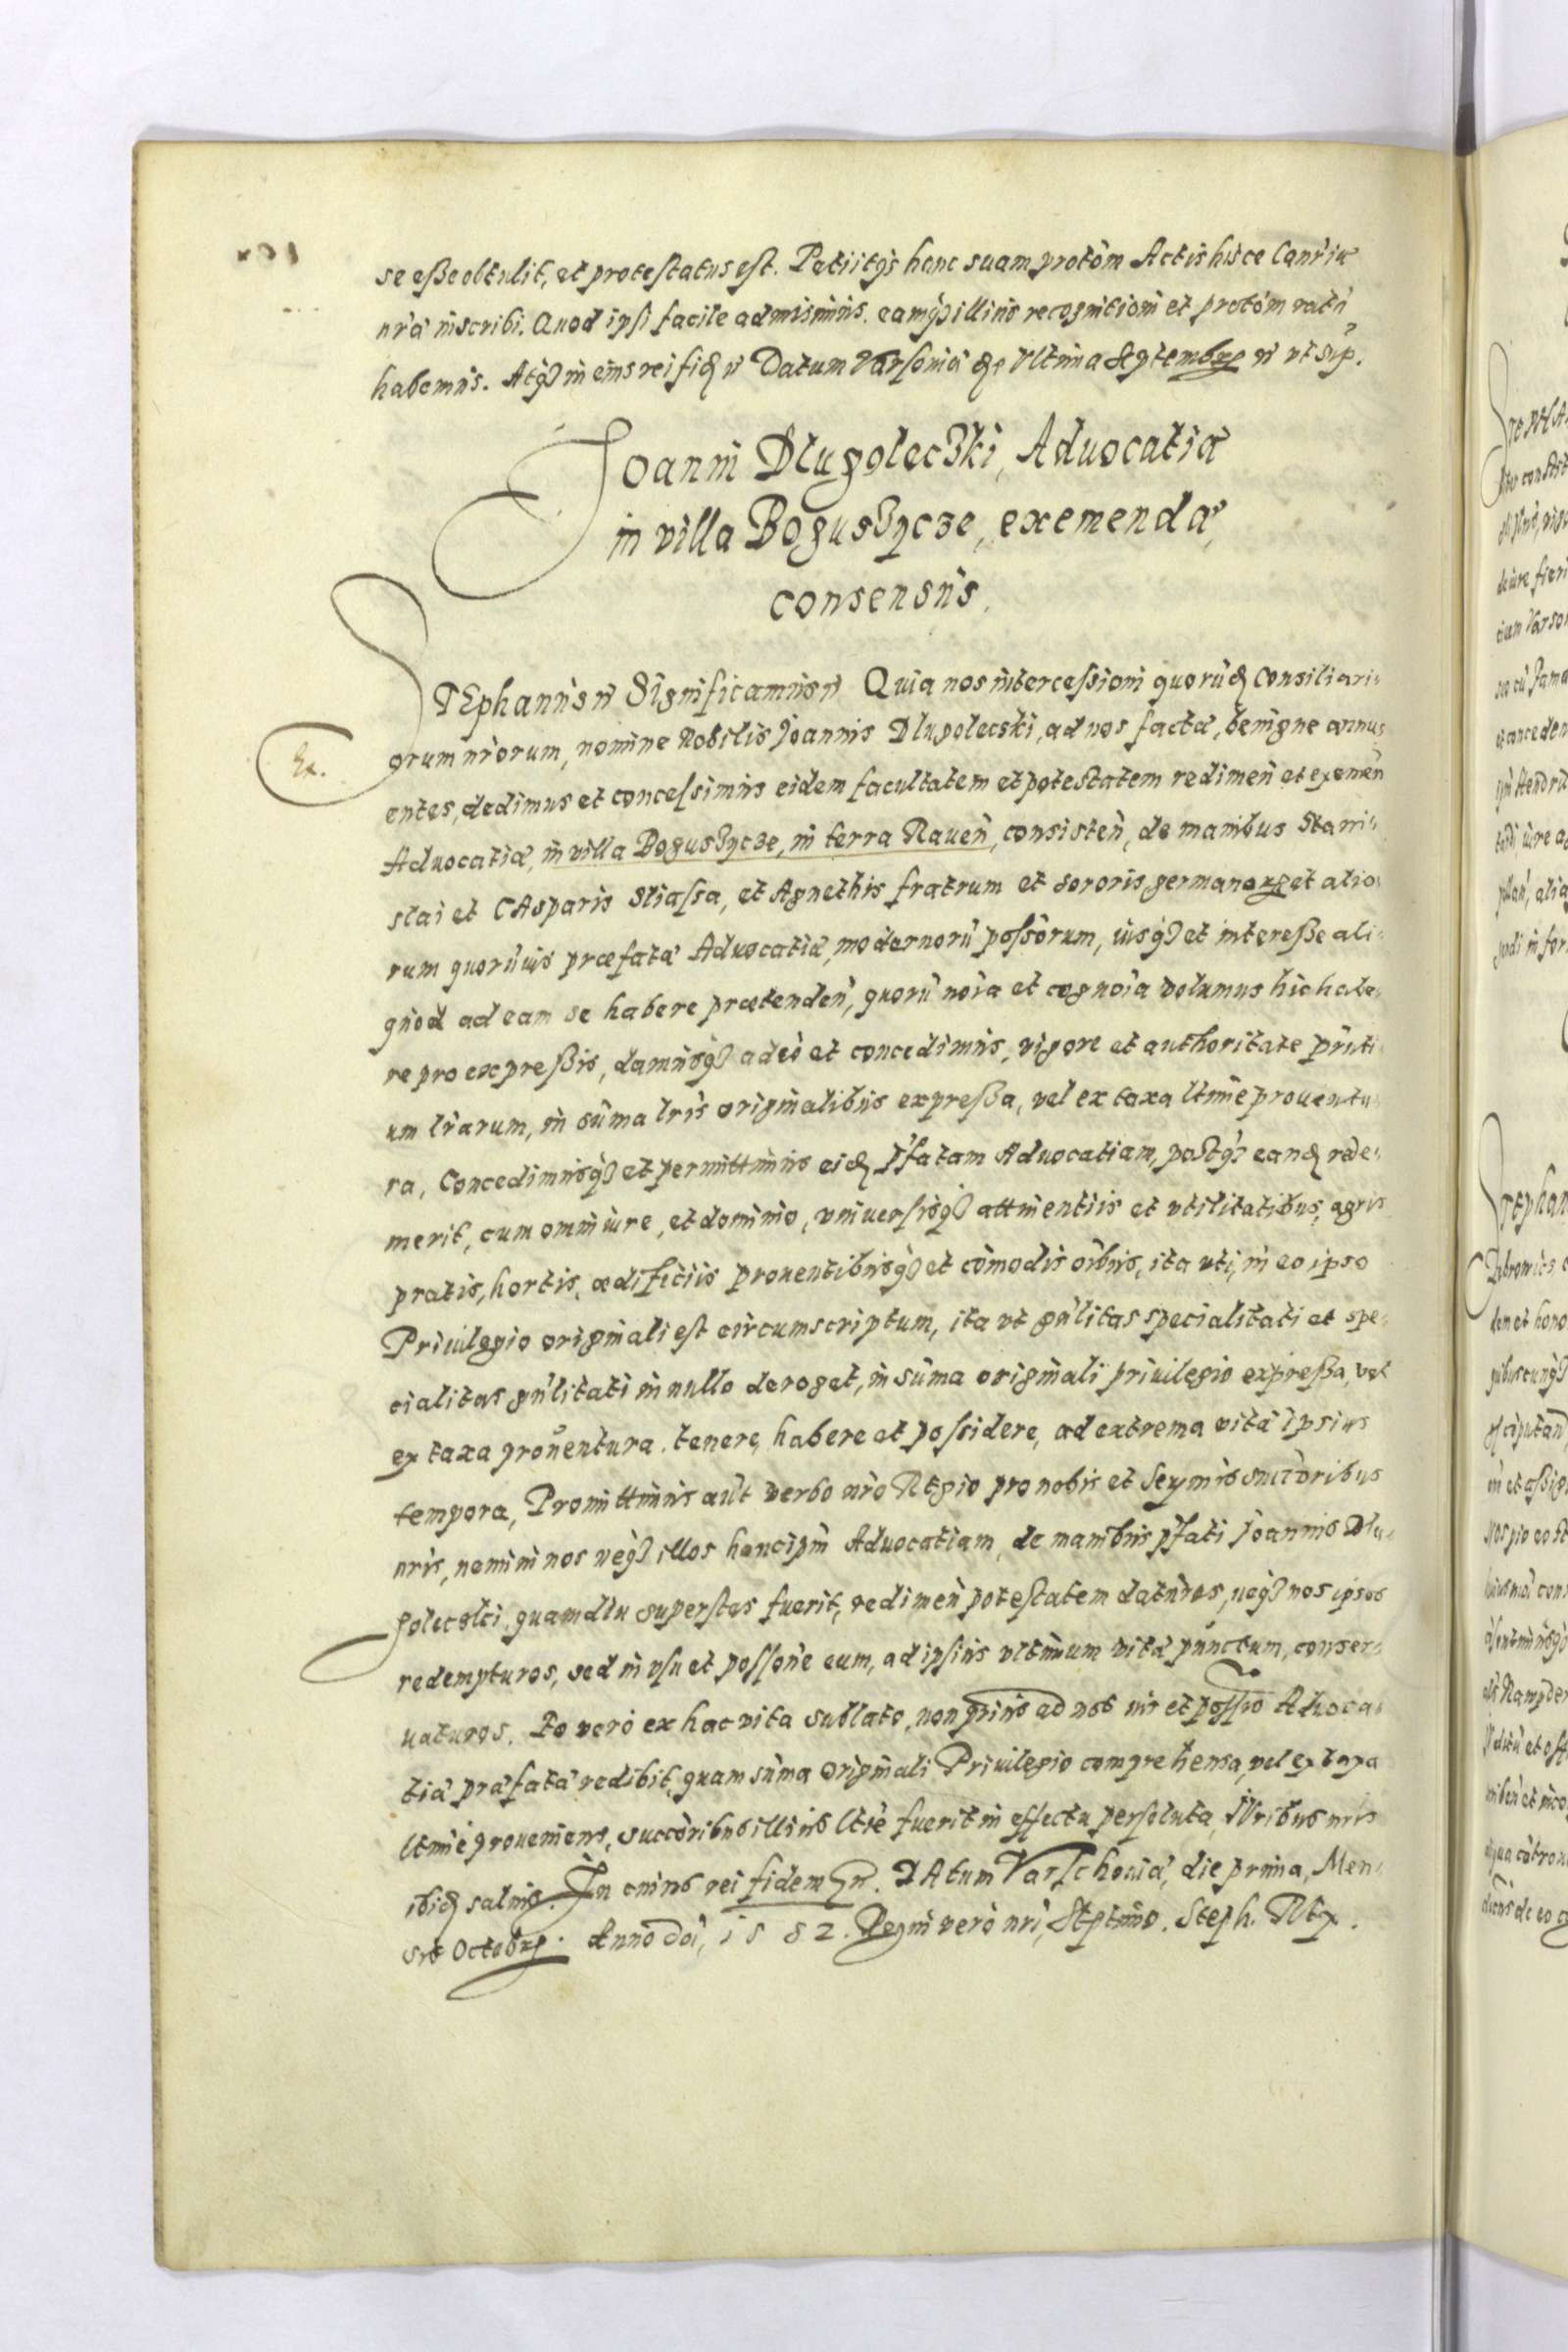 se eße obtulit, et protestatus est. Petiitq̃ hanc suam protõm Actis hisce Canriæ
nr̃æ inscribi. Quod ipsi facile admisimus. eamq̃ illius recognitionẽ et protõm ratã
habemus. Atq̃ in eius rei fidẽ Datum Varsouiæ Vltima Septembr ut sup.
Joanni Dlugoleczki, Aduocatiæ
in villa Boguszycze, exemendæ,
consensus.
STEphanus Significamus Quia nos intercessioni quorũd Consiliari=
Ex.
orum nr̃orum, nomine Nobilis Joannis Dlugolecski, ad nos factæ, benigne annu=
entes, dedimus et concessimus eidem facultatem et potestatem redimeñ et exemeñ
Aduocatiæ, in villa Boguszycze, in terra Raueñ, consisteñ, de manibus Stani=
slai et CAsparis Sliassa, et Agnethis fratrum et sororis germanor et alio
rum quorũuis præfatæ Aduocatiæ, modernorũ possõrum, iusq̃ et intereße ali=
quod ad eam se habere prætendeñ, quorũ noĩa et cognoĩa volumus hic habe=
re pro expreßis, damusq̃ adeò et concedimus, vigore et authoritate pñti
um lr̃arum, in sũma lr̃is originalibus expreßa, vel ex taxa ltimè prouentu=
ra, Concedimusq̃ et permittimus eid p̃fatam Aduocatiam, postq̃ eand rede=
merit, cum omni iure, et dominio, vniuersisq̃ attinentiis et vtilitatibus, agris
pratis, hortis, ædificiis prouentibusq̃ et cõmodis oĩbus, ita uti, in eo ipso
Priuilegio originali est circumscriptum, ita vt gñlitas specialitati et spe=
cialitas gñlitati in nullo deroget, in sũma originali priuilegio expreßa, vel
ex taxa prouentura. tenere, habere et possidere, ad extrema vitæ ipsius
tempora, Promittimus aũt verbo nr̃o Regio pro nobis et Sermis succõribus
nr̃is, nemini nos neq̃ illos hanc ipm̃ Aduocatiam, de manibus p̃fati Joannis Dlu=
golecski, quamdiu superstes fuerit, redimeñ potestatem daturos, neq̃ nos ipsos
redempturos, sed in vsu et possone eum, ad ipsius vltimum vitæ punctum, conser=
uaturos. Eo verò ex hac vita sublato, non prius ad nos ius et possio Aduoca=
tiæ præfatæ redibit, quam sũma originali Priuilegio comprehensa, vel ex taxa
ltimè proueniens, succõribus illius ltiè fuerit in effectu persoluta, Iuribus nr̃is
ibid saluis. In cuius rei fidem. DAtum Varschouiæ, die prima, Men=
sis Octobr. Anno Doĩ, 1582. Regni verò nr̃i, Septimo. Steph. Rex.